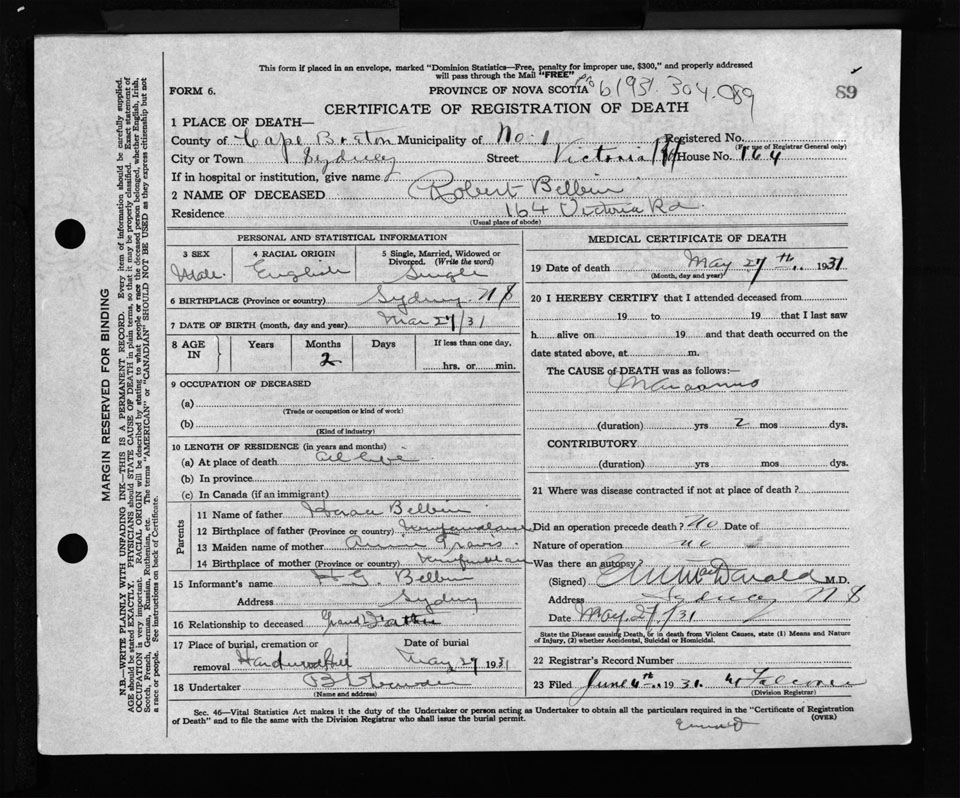 This form if placed in an envelope, marked "Dominion Statistics—Free, penalty for improper use, $300," and properly addressed
will pass through the Mail "FREE"
FORM 6. PROVINCE OF NOVA SCOTIA 6 1931. 304.089 89
CERTIFICATE OF REGISTRATION OF DEATH
1 PLACE OF DEATH—
County of Cape Breton Municipality of No. 1 Registered No.
(For use of Registrar General only)
City or Town Sydney Street Victoria Rd House No. 164
If in hospital or institution, give name
2 NAME OF DECEASED Robert Belbin
Residence 164 Victoria Rd.
(Usual place of abode)
PERSONAL AND STATISTICAL INFORMATION
3 SEX 4 RACIAL ORIGIN 5 Single, Married, Widowed or
Divorced. (Write the word)
Male. English Single
6 BIRTHPLACE (Province or country) Sydney. N S
7 DATE OF BIRTH (month, day and year) Mar 27/31
8 AGE IN Years Months Days If less than one day,
2 hrs. or min.
9 OCCUPATION OF DECEASED
(a)
(Trade or occupation or kind of work)
(b)
(Kind of industry)
10 LENGTH OF RESIDENCE (in years and months)
(a) At place of death all life
(b) In province
(c) In Canada (if an immigrant)
Parents
11 Name of father Horace Belbin
12 Birthplace of father (Province or country) Newfoundland
13 Maiden name of mother Annie Travis.
14 Birthplace of mother (Province or country) Newfoundland
15 Informant's name H. G. Belbin
Address Sydney
16 Relationship to deceased Grand Father
17 Place of burial, cremation or Date of burial
removal Hardwood Hill May 27 1931
18 Undertaker
(Name and address)
MEDICAL CERTIFICATE OF DEATH
19 Date of death May 27th 1931
(Month, day and year)
20 I HEREBY CERTIFY that I attended deceased from
19 to 19 that I last saw
h alive on 19 and that death occurred on the
date stated above, at m.
The CAUSE of DEATH was as follows:—
Marasmus
(duration) yrs 2 mos dys.
CONTRIBUTORY
(duration) yrs mos dys.
21 Where was disease contracted if not at place of death?
Did an operation precede death? No Date of
Nature of operation
Was there an autopsy? no
(Signed) McDonald M.D.
Address Sydney N S
Date May 27/31
State the Disease causing Death, or in death from Violent Causes, state (1) Means and Nature
of Injury, (2) whether Accidental, Suicidal or Homicidal.
22 Registrar's Record Number
23 Filed June 4th 1931. W Falconer
(Division Registrar)
Sec. 46—Vital Statistics Act makes it the duty of the Undertaker or person acting as Undertaker to obtain all the particulars required in the "Certificate of Registration
of Death" and to file the same with the Division Registrar who shall issue the burial permit. (OVER)
MARGIN RESERVED FOR BINDING
N.B.—WRITE PLAINLY WITH UNFADING INK—THIS IS A PERMANENT RECORD. Every item of information should be carefully supplied.
AGE should be stated EXACTLY. PHYSICIANS should STATE CAUSE OF DEATH in plain terms, so that it may be properly classified. Exact statement of
OCCUPATION is very important. RACIAL ORIGIN will be described by stating to what people or race the deceased person belonged, whether English, Irish,
Scotch, French, German, Russian, Ruthenian, etc. The terms "AMERICAN" or "CANADIAN" SHOULD NOT BE USED as they express citizenship but not
a race or people. See instructions on back of Certificate.